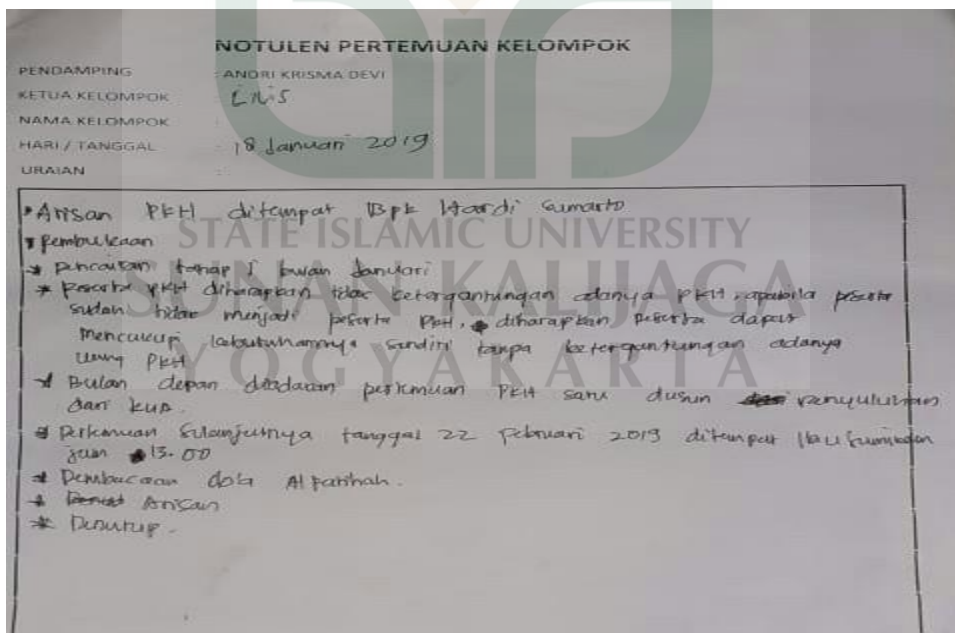 NOTULEN PERTEMUAN KELOMPOK
PENDAMPING : ANDRI KRISMA DEVI
KETUA KELOMPOK : Lilis
NAMA KELOMPOK :
HARI / TANGGAL : 18 Januari 2019
URAIAN :
* Arisan PKH ditempat Bpk Hardi Sumarto
* Pembukaan
* Pencairan tahap I bulan Januari
* Peserta PKH diharapkan tidak ketergantungan adanya PKH, apabila peserta
sudah tidak menjadi peserta PKH, diharapkan peserta dapat
Mencukupi kebutuhannya sendiri tanpa ketergantungan adanya
uang PKH
* Bulan depan diadakan pertemuan PKH satu dusun penyuluhan
dari KUA.
* Pertemuan Selanjutnya tanggal 22 Februari 2019 ditempat Ibu
jam 13.00
* Pembacaan doa Al Fatihah.
* Arisan
* Penutup.
STATE ISLAMIC UNIVERSITY
SUNAN KALIJAGA
YOGYAKARTA